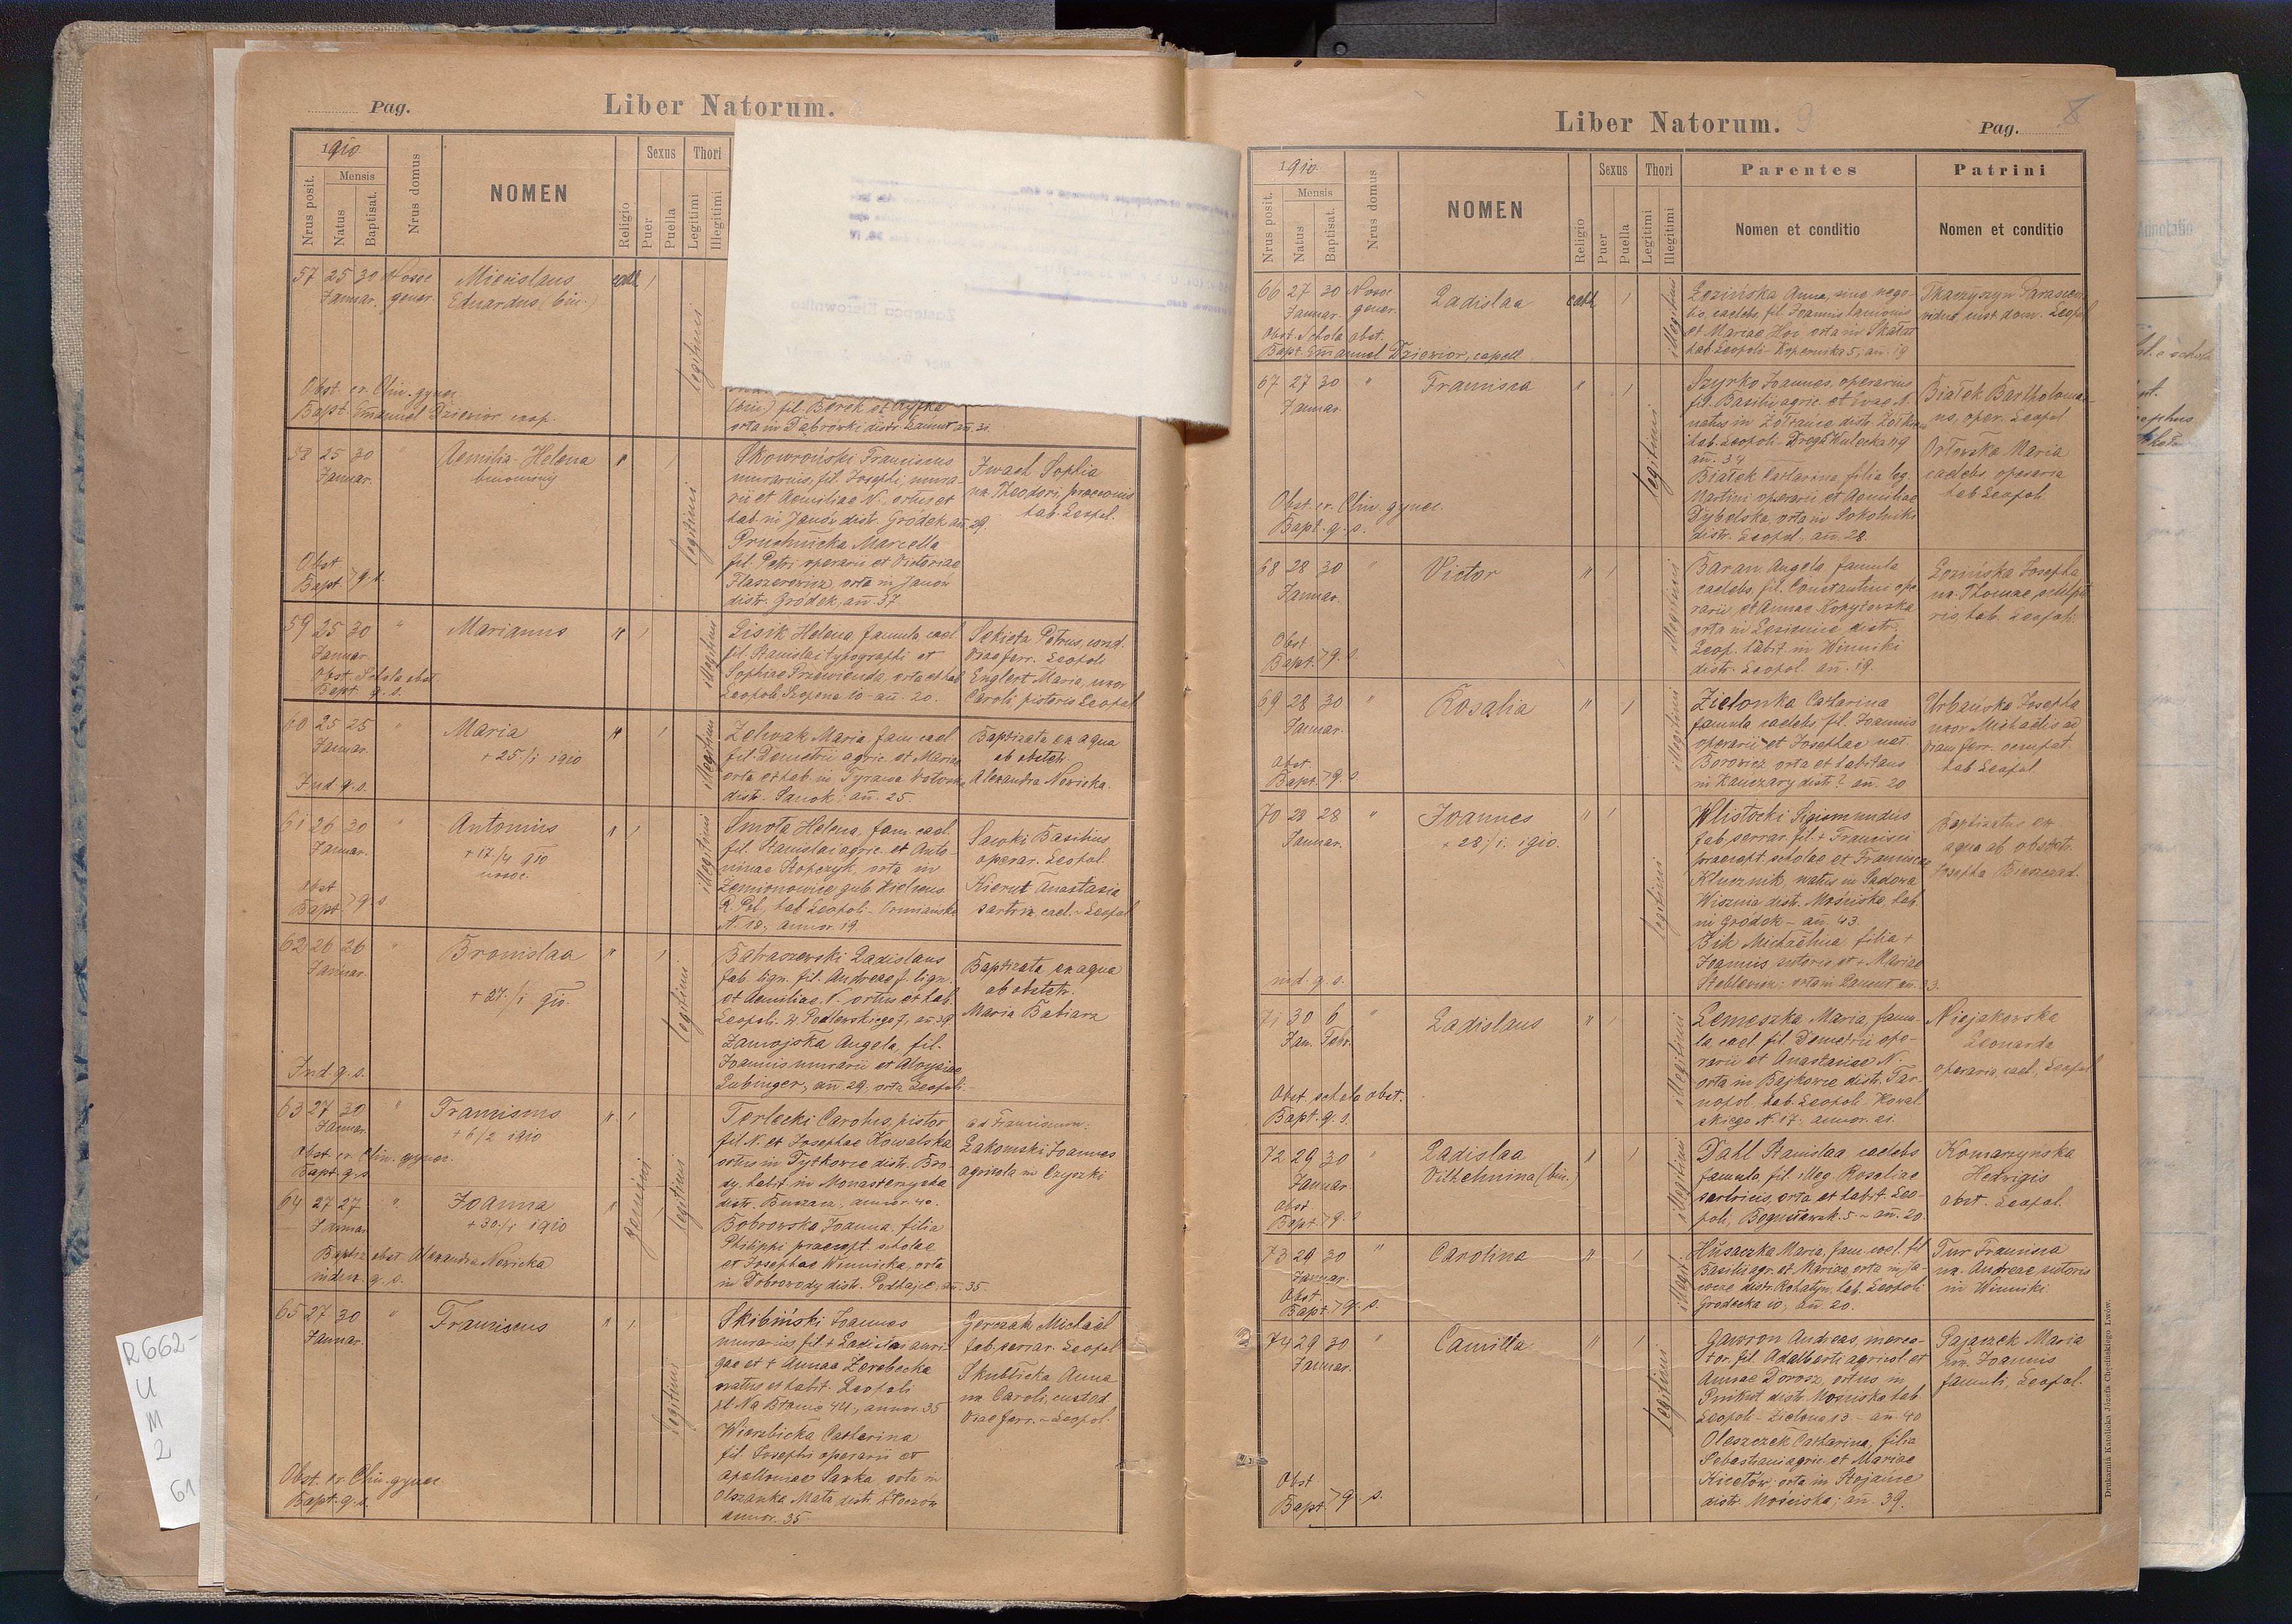 Pag.
Liber Natorum.
1910
Nrus posit.
Mensis
Natus
Baptisat.
Nrus domus
NOMEN
Religio
Sexus
Puer
Puella
Thori
Legitimi
Illegitimi
57 25 30 Nosoc Mieczislaus cath
Januar. gener. Eduardus (bin.)
legitimi
Obst. cr. Clin. gynec
Bapt Emanuel Dziewior coop.
(bin) fil. Berek et
orta in Dąbrówki distr. Łańcut an. 31.
58 25 30 " Aemilia-Helena
Januar. binomony
legitimi
Skowroński Franciscus
murarius, fil. Josephi mura-
rii et Aemiliae N., ortus et
hab. in Janów distr. Gródek an. 29.
Pruchnicka Marcella
fil. Petri operarii et Victoriae
Płaszerowicz, orta in Janów
distr. Gródek, an. 37
Iwach Sophia
ux. Theodori, praeconis
hab. Leopol.
Obst
Bapt. > q. s.
59 25 30 " Marianus
Januar.
Obst. Schola obst.
Bapt. q. s.
illegitimi
Lisik Helena, famula cael
fil. Stanislai typographi et
Sophiae Przewienda, orta et hab.
Leopoli Szopena 10 - an. 20.
Sekieta Petrus, cond.
viae ferr. Leopoli
Englert Maria, uxor
Caroli, pistoris Leopol
60 25 25 " Maria
Januar. + 25./i 1910
Ind. q. s.
illegitimi
Zelwak Maria, fam. cael.
fil. Demetrii agric. et Mariae
orta et hab. in Tyrawa Wołoska
distr. Sanok; an. 25.
Baptizata ex aqua
ab obstetr.
Alexandra Nowicka.
61 26 30 " Antonius
Januar. + 17/4 910
nosoc.
Obst
Bapt > q. s
illegitimi
Smota Helena, fam. cael.
fil. Stanislai agric. et Anto-
ninae Stopczyk, orta in
Ziemionowice gub. Kielcens
R. Pol., hab. Leopoli - Ormiańska
N. 18., annor. 19.
Sawki Basilius
operar. Leopol.
Kierut Anastasia
sartrix, cael. - Leopol
62 26 26 " Bronislaa
Januar.
+ 27./i 910.
Ind. q. s.
legitimi
Bałraszewski Ladislaus
fab. lign. fil. Andreae f. lign.
et Aemiliae N. ortus et hab.
Leopoli. W. Podlewskiego 7, an 39
Zamojska Angela, fil.
Joannis murarii et Aloysiae
Lubinger, an. 29. orta Leopoli.
Baptizata ex aqua
ab obstetr.
Maria Babiarz
63 27 30 " Franciscus
Januar. + 6/2 1910
Obst. cr. Clin. gynec.
Bapt. q. s
gemini legitimi
Terlecki Carolus, pistor
fil. N. et Josephae Kowalska
ortus in Dytkowce distr. Bro-
dy, habit. in Monasterzyska
distr. Buczacz, annor. 40.
Bobrowska Joanna, filia
Philippi praecept. scholae
et Josephae Winnicka, orta
in Dobrowody distr. Podhajce, an. 35.
ad Franciscum:
Zakomski Joannes
agricola in Czyszki
64 27 27 " Joanna
Januar + 30./i 1910
Baptiz. obst. Alexandra Nowicka
inden. q. s.
65 27 30 " Franciscus
Januar.
legitimi
Skibiński Joannes
murarius, fil. + Ladislai auri-
gae et + Annae Zerebecka
natus et habit. Leopoli
pl. Na Błonie 44., annor. 35
Wierzbicka Catharina
fil. Josephi operarii et
Apolloniae Sawka, orta in
Olszanka Mała distr. Złoczów
annor. 35
Gerczak Michaël
fab. serrar. Leopol
Skublicka Anna
ux. Caroli, custod.
viae ferr. - Leopol.
Obst. cr. Clin. gynec
Bapt. q. s.
R 662-
U
M
2
61
Liber Natorum. 9
Pag. 8
1910.
Nrus posit.
Mensis
Natus
Baptisat.
Nrus domus
NOMEN
Religio
Sexus
Puer
Puella
Thori
Legitimi
Illegitimi
Parentes
Nomen et conditio
Patrini
Nomen et conditio
66 27 30 Nosoc Ladislaa cath
Januar. gener.
Obst. Schola obst.
Bapt. Emanuel Dziewior, capell.
illegitimi
Łozińska Anna, sine nego-
tio, caelebs, fil. Joannis lanionis
et Mariae Hoi, orta in Skałat
hab. Leopoli - Kopernika 5, an. 19
Tkaczyszyn Parascew
vidua, cust. dom. Leopol
67 27 30 " Francisca
Januar.
legitimi
Szyrko Joannes, operarius
fil. Basilii agric. et Evae N.
natus in Żółtańce distr. Żółkiew
hab. Leopoli. Droga Wulecka 49
an. 34
Białek Catharina, filia leg.
Martini operarii et Aemiliae
Dybelska, orta in Sokolniki
distr. Leopol, an. 28.
Białek Bartholomae-
us, oper. Leopol
Orłowska Maria
caelebs, operaria
hab. Leopol.
Obst. cr. Clin. gynec.
Bapt. q. s.
68 28 30 " Victor
Januar.
Obst
Bapt. > q. s
illegitimi
Baran Angela, famula
caelebs, fil. Constantini ope-
rarii et Annae Kopyżowska
orta in Lesienice distr.
Leop., habit. in Winniki
distr. Leopol. an. 19.
Łozińska Josepha
ux. Thomae, sculpto
ris, hab. Leopoli.
69 28 30 " Rosalia
Januar.
Obst
Bapt. > q. s
illegitimi
Zielonka Catharina
famula caelebs fil. Joannis
operarii et Josephae nat.
Borowicz orta et habitans
in Kańczary distr.? an. 20
Urbańska Josepha
uxor Michaëlis ad
viam ferr. occupat.
hab. Leopol
70 28 28 " Joannes
Januar. + 28/i. 1910.
ind. q. s.
legitimi
Wlistocki Sigismundus
fab. serrar. fil. + Francisci
praecept. scholae et Franciscae
Klucznik, natus in Sadowa
Wisznia distr. Mościska, hab
in Gródek - an. 43.
Bik Michaëlina filia +
Joannis sutoris et + Mariae
Steblewicz; orta in Łańcut an. 33.
Baptizatus ex
aqua ab obstetr.
Josepha Bieszczad.
71 30 6 " Ladislaus
Jan. Febr.
Obst. schola obst.
Bapt. q. s.
illegitimi
Lemeszka Maria, famu-
la cael. fil. Demetrii ope-
rarii et Anastasiae N.
orta in Bajkowce distr. Tar-
nopol, hab. Leopoli. Kowal-
skiego N. 17. annor. 21.
Niejakowska
Leonarda
operaria, cael., Leopol
72 29 30 " Ladislaa
Januar Vilhelmina (bin.)
Obst
Bapt. > q. s
illegitimi
Dall Stanislaa, caelebs
famula, fil. illeg. Rosaliae
sartricis, orta et habit. Leo-
poli, Bogusławsk. 5. - an. 20.
Komarzyńska
Hedvigis
obst. Leopol.
73 29 30 " Carolina
Januar.
Obst.
Bapt. > q. s.
illegit.
Husaczka Maria, fam. cael. fil
Basilii agr. et Mariae, orta in Ja-
wcze distr. Rohatyn, hab. Leopoli
Grodecka 10; an. 20.
Tur Francisca
ux. Andreae, sutoris
in Winniki
74 29 30 " Camilla
Januar.
legitimi
Gawron Andreas, merca-
tor, fil. Adalberti agricol. et
Annae Dorosz, ortus in
Pnikut distr. Mościska, hab.
Leopoli - Zielona 13 - an. 40
Oleszczek Catharina, filia
Sebastiani agric. et Mariae
Kicełów, orta in Stojańce
distr. Mościska; an. 39.
Pajączek Maria
ux. Joannis
famuli, Leopol.
Obst
Bapt. > q. s.
Drukarnia Katolicka Józefa Chęcińskiego Lwów.